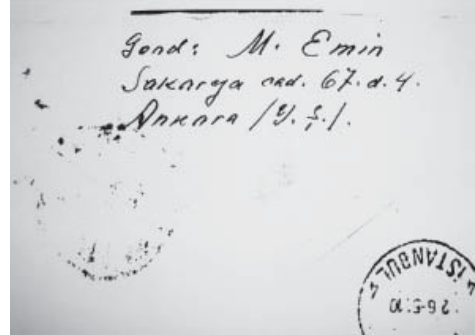 Gönd: M. Emin
Sakarya cad. 67. d. 4.
Ankara /Y. Ş./.
İSTANBUL